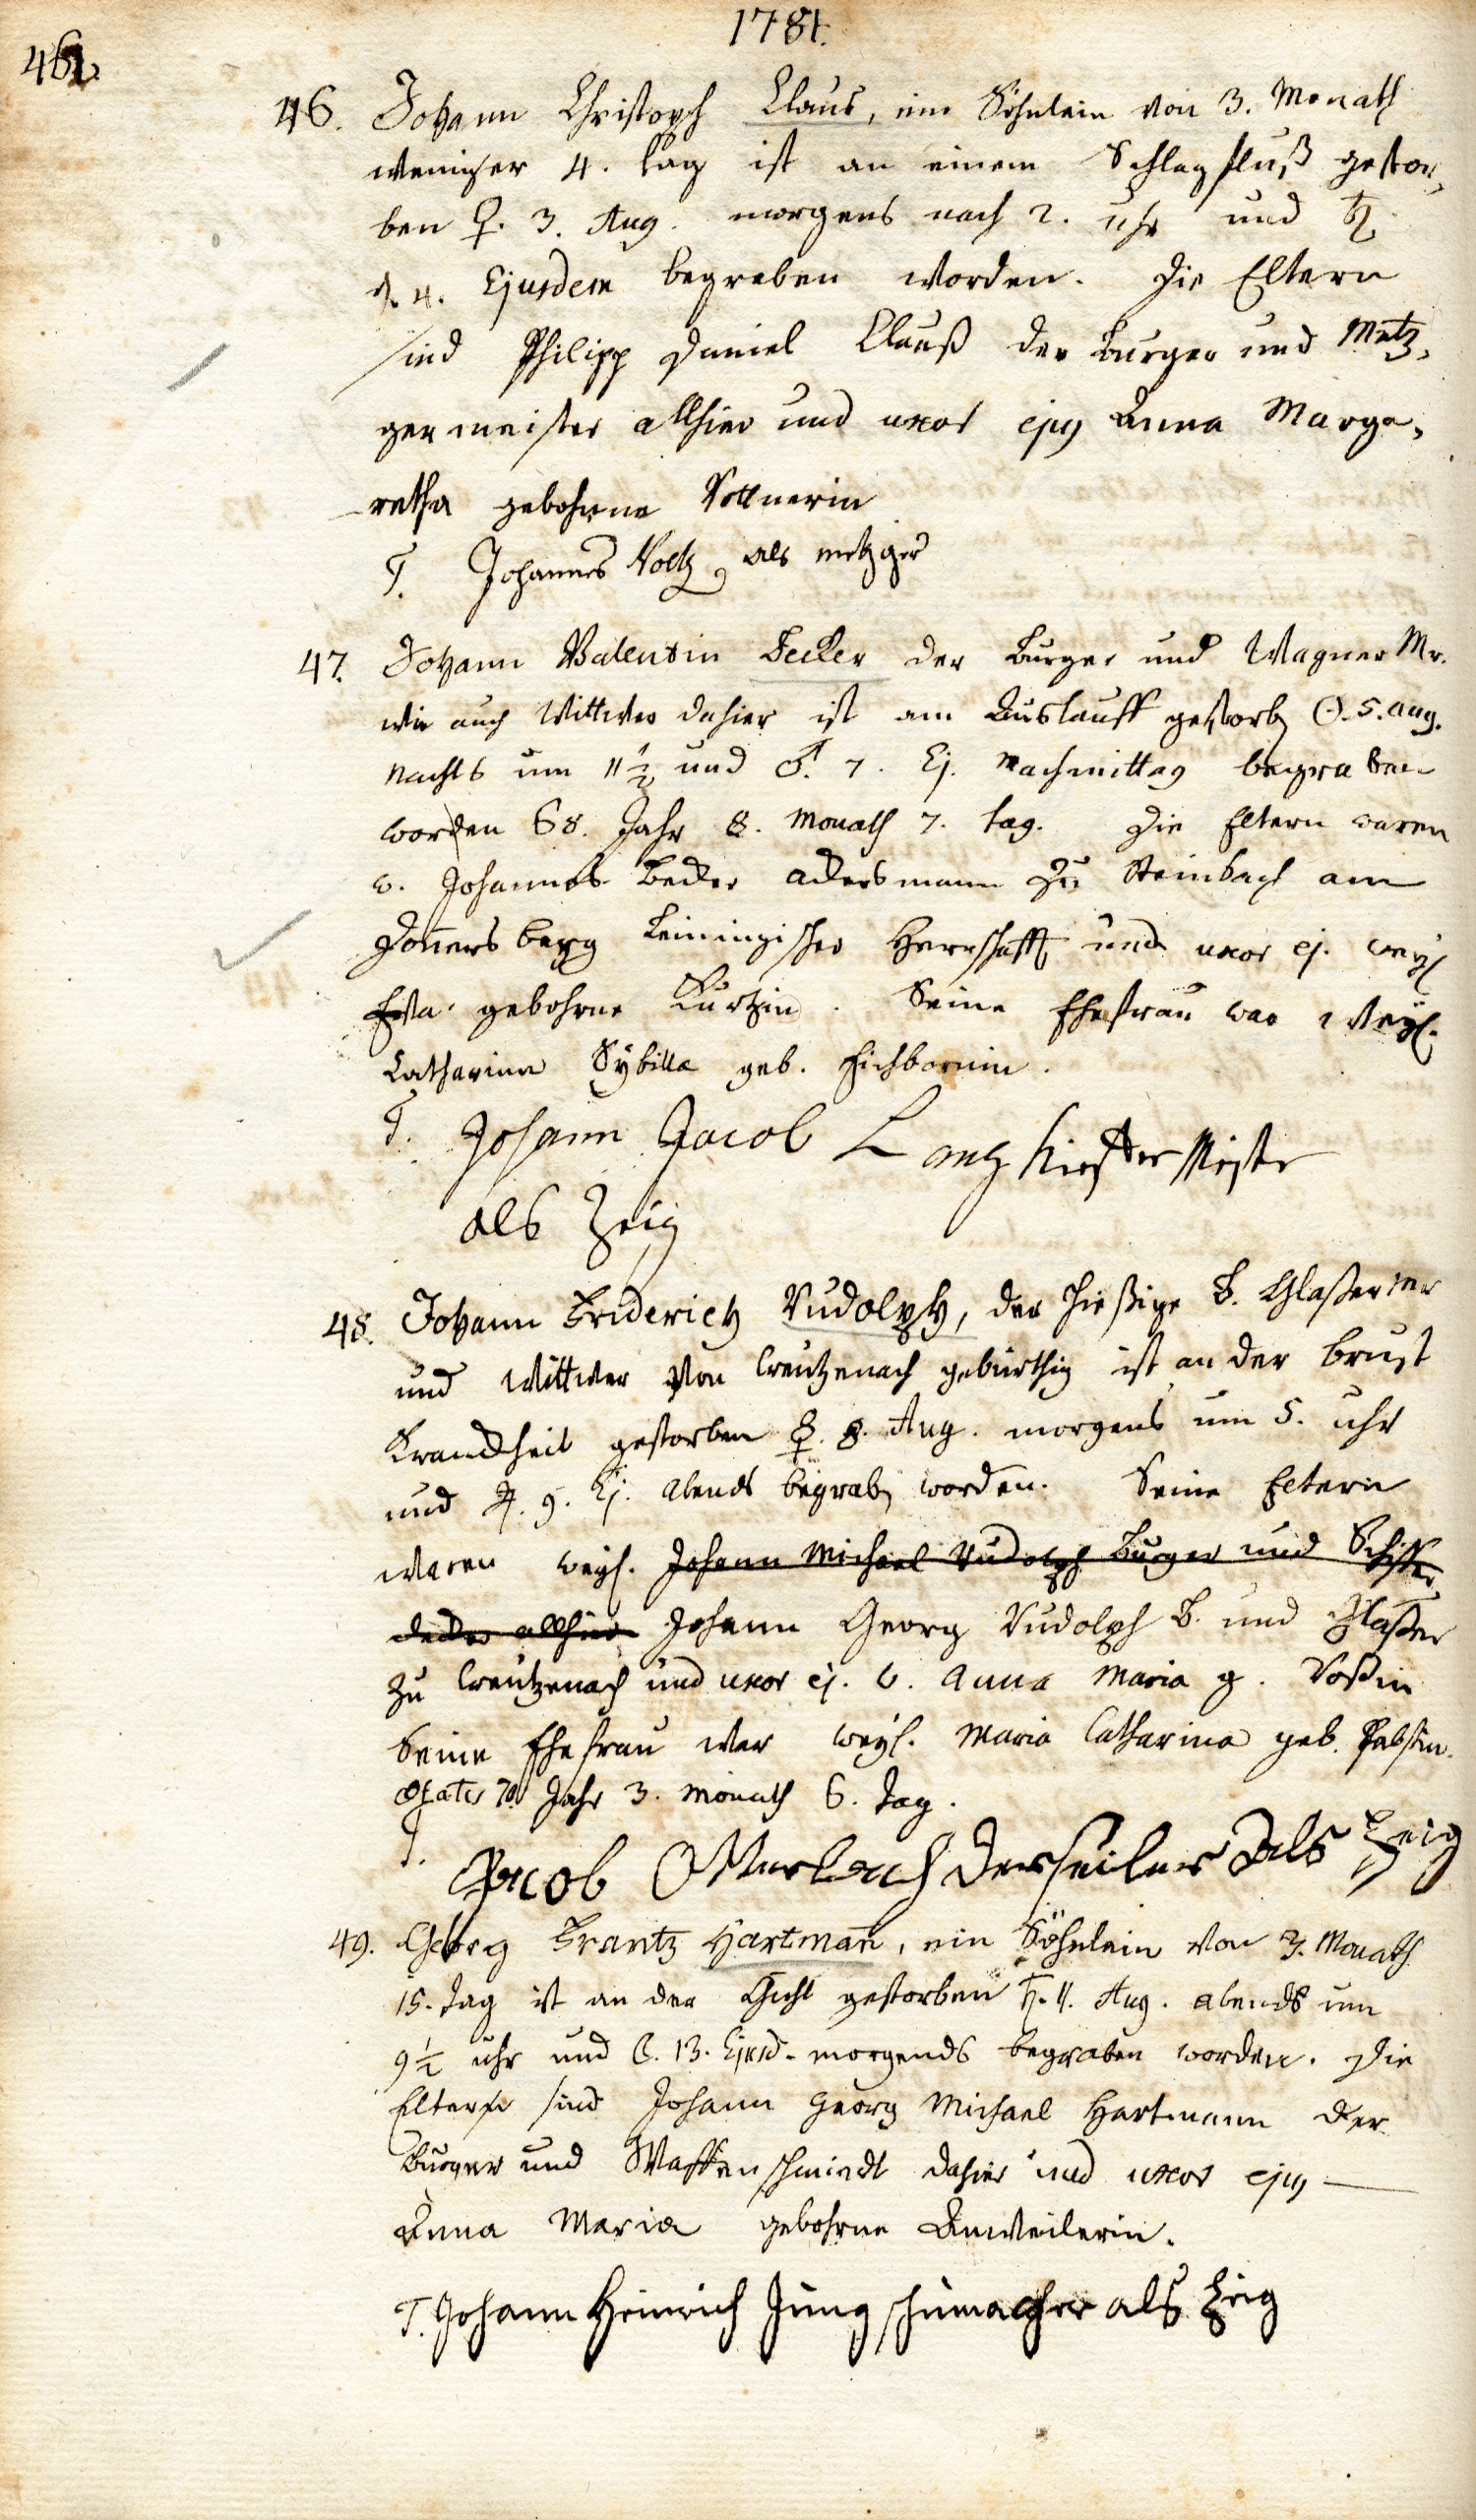 1781.
462.
46. Johann Christoph Claus, ein Söhnlein von 3. Monath
weniger 4. tag ist an einem Schlagfluß gestor,
ben ♀. 3. Aug. morgens nach 2. uhr und ♄
d. 4. Ejusdem begraben worden. Die Eltern
sind Philipp Daniel Clauß der Burger und Metz,
germeister allhier und uxor ejus Anna Marga,
retha gebohrne
T. Johannes Voltz als metzger
47. Johann Valentin Becker der Burger und Wagner Mr.
wie auch Wittwer dahier ist am Auslauff gestorb. ☉. 5. aug.
Nachts um 11½ und ♂. 7. Ej. Nachmittag begraben
worden 68. Jahr 8. Monath 7. tag. Die Eltern waren
v. Johannes Becker ackersmann zu Steinbach am
Doñersberg Leiningischer Herrschafft und uxor ej. weyl.
Eva gebohrne Kurtzin. Seine Ehefrau war weyl.
Catharina Sÿbilla geb. Eichbornin.
T. Johann Jacob Lang
als Zeig
48. Johann Friderich Rudolph, der hießige B. Glaßer mr
und Wittwer von Creutzenach gebürthig ist an der Brust
Kranckheit gestorben ☿. 8. Aug. morgens um 5. uhr
und ♃. 9. Ej. abends begrab. worden. Seine Eltern
waren weyl. Johann Michael Rudolph Burger und Schiffer
decker allhier Johann Georg Rudolph B. und Glaßer
zu Creutzenach und uxor ej. v. Anna Maria g. Voßin
Seine Ehefrau war weyl. Maria Catharina geb. Pabstin.
Ætatis 70 Jahr 3. Monath 6. Tag.
T. Jacob Otterbach der seiler als Zeig
49. Georg Frantz Hartmañ, ein Söhnlein von 3. Monath
15. Tag ist an der Gicht gestorben ♄. 11. Aug. abends um
9½ uhr und ☾. 13. Ejusd. morgends begraben worden. Die
Eltern sind Johann Georg Michael Hartmann der
Burger und Waffenschmiedt dahier und uxor ejus
Anna Maria gebohrne Anweilerin.
T. Johann Heinrich Jung schumacher als Zeig